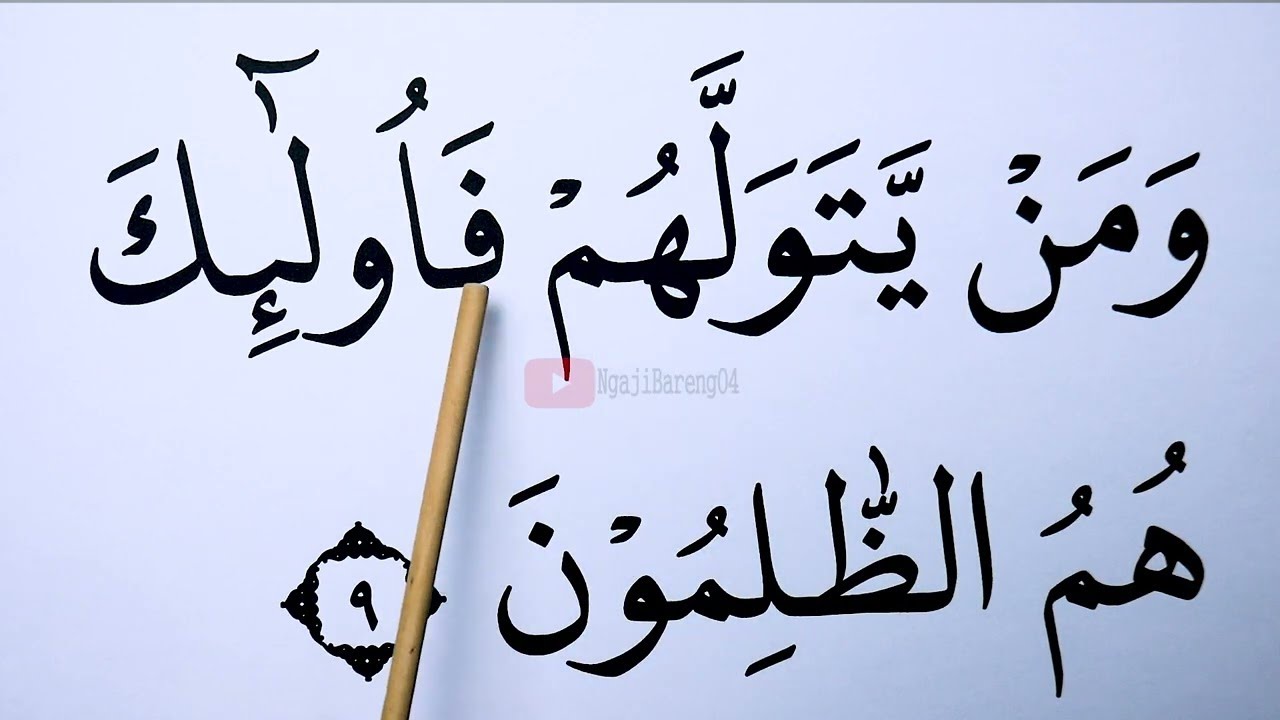 وَمَنْ يَّتَوَلَّهُمْ فَاُولٰۤىِٕكَ
NgajiBareng04
هُمُ الظّٰلِمُوْنَ ٩